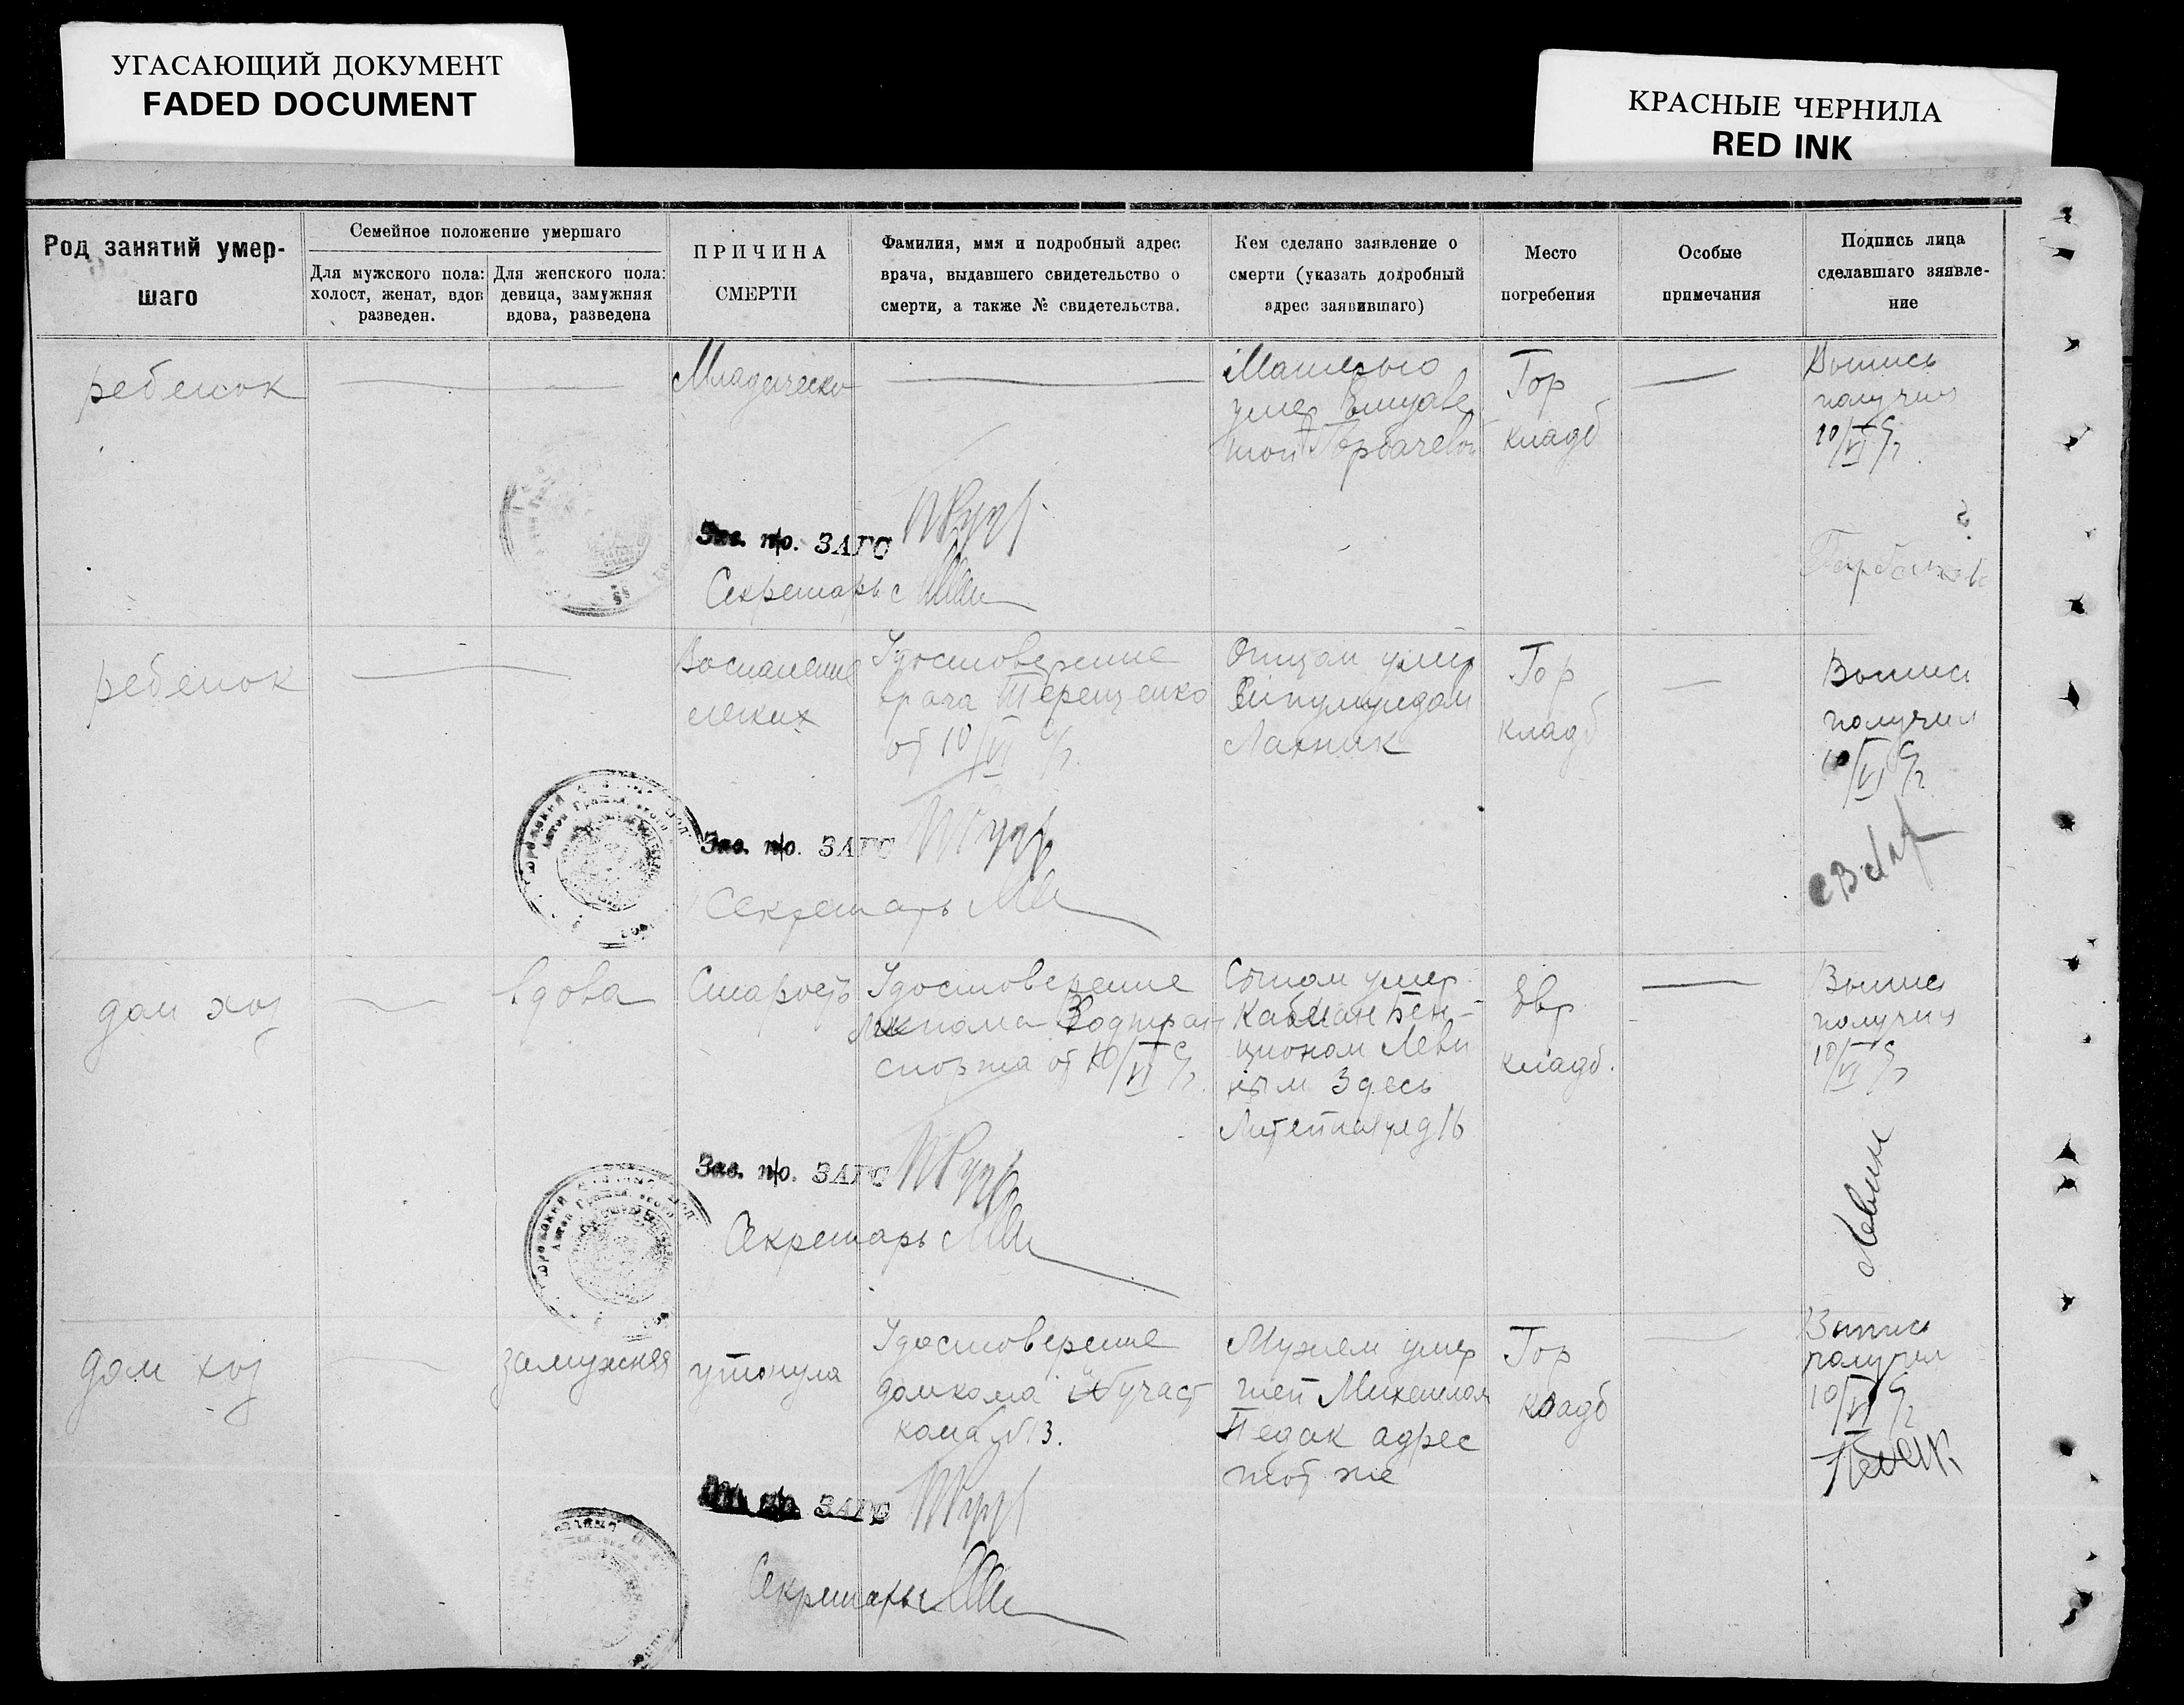 УГАСАЮЩИЙ ДОКУМЕНТ
FADED DOCUMENT
КРАСНЫЕ ЧЕРНИЛА
RED INK
Род занятий умер-
шаго
Семейное положение умершаго
Для мужского пола:
холост, женат, вдов
разведен.
Для женского пола:
девица, замужняя
вдова, разведена
ПРИЧИНА
СМЕРТИ
Фамилия, имя и подробный адрес
врача, выдавшего свидетельство о
смерти, а также № свидетельства.
Кем сделано заявление о
смерти (указать додробный
адрес заявившаго)
Место
погребения
Особые
примечания
Подпись лица
сделавшаго зяявле-
ние
ребенок
Младеческо
Матерью
умер
Горбачевой
Гор
кладб
Выпись
получил
10/VI
Зав. п/о. ЗАГС
Секретарь
ребенок
Воспаление
легких
Удостоверение
врача Терещенко
от 10/VI
Отцом умер
Лахник
Гор
кладб
Выпись
получил
10/VI
Зав. п/о. ЗАГС
Секретарь
дом хоз
вдова
Старость
Удостоверение
Водтран
спорта от 10/VI
Сыном умер
Кабман Бен-
ционом Леви
ным Здесь
Литейная ул д 16
Евр
кладб.
Выпись
получил
10/VI
Левин
Зав. п/о. ЗАГС
Секретарь
дом хоз
замужняя
утонула
Удостоверение
домкома участ
кома №13.
Мужем умер
шей Михаилом
Педак адрес
тот же
Гор
кладб
Выпись
получил
10/VI
Педак
ЗАГС
Секретарь